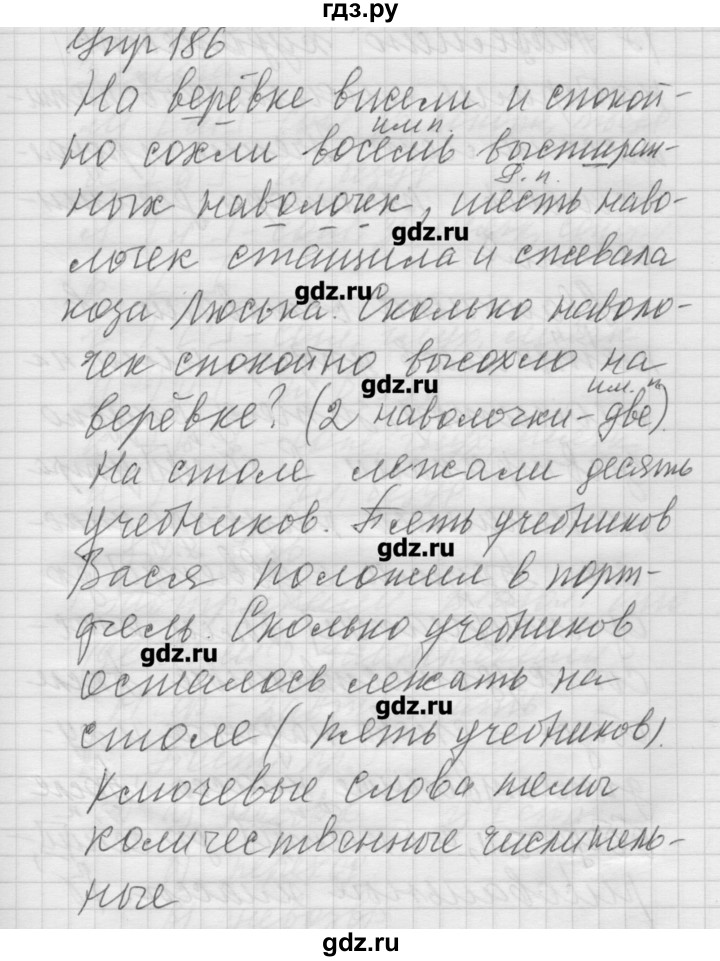 гдз.ру
Упр 186
На верёвке висели и спокой-
им п.
но сохли восемь выстиран-
в. п.
ных наволочек, шесть наво-
gdz.ru
лочек стащила и сжевала
gdz.ru
коза Люська. Сколько наволо-
чек спокойно высохло на
gdz.ru
им. п.
верёвке? (2 наволочки - две).
На столе лежали десять
учебников. Пять учебников
gdz.ru
Вася положил в порт-
фель. Сколько учебников
gdz.ru
осталось лежать на
gdz.ru
столе (пять учебников).
Ключевые слова темы
количественные числитель-
ные
gdz.ru